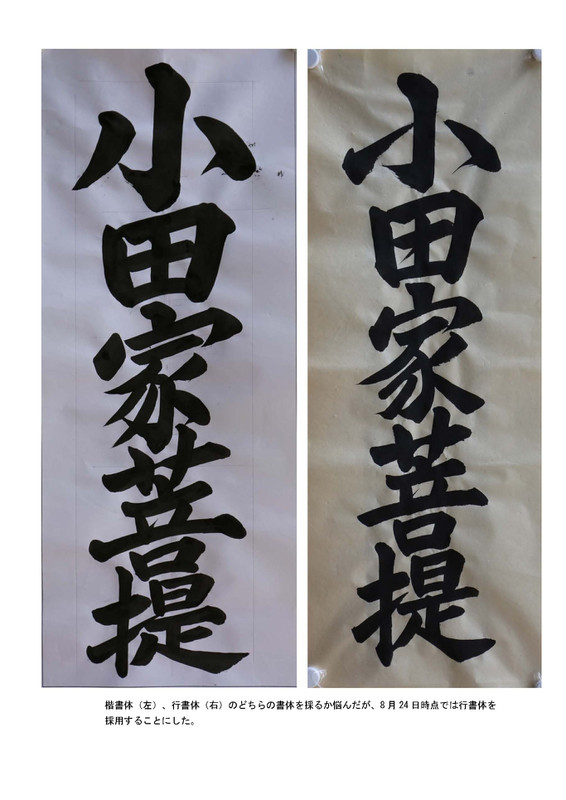 小田家菩提
小田家菩提
楷書体（左）、行書体（右）のどちらの書体を採るか悩んだが、8月24日時点では行書体を
採用することにした。